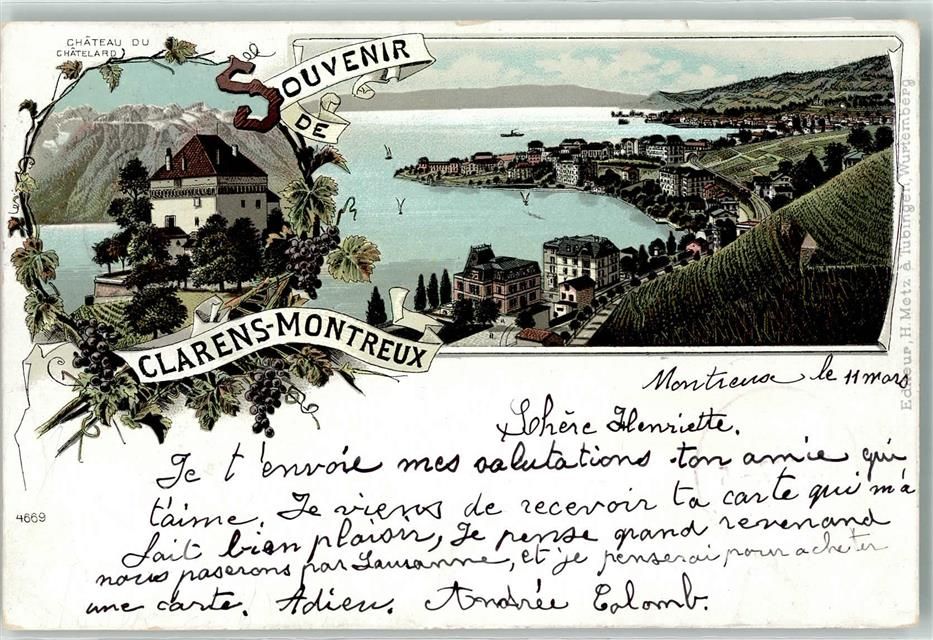 CHÂTEAU DU
CHÂTELARD
SOUVENIR
DE
CLARENS-MONTREUX
Editeur, H. Metz à Tubingen, Wurtemberg
4669
Montreux le 11 mars
Chère Henriette.
Je t'envoie mes salutations ton amie qui
t'aime. Je viens de recevoir ta carte qui m'a
fait bien plaisir, Je pense quand revenand
nous paserons par Lausanne, et je penserai pour acheter
une carte. Adieu. Andrée Colomb.